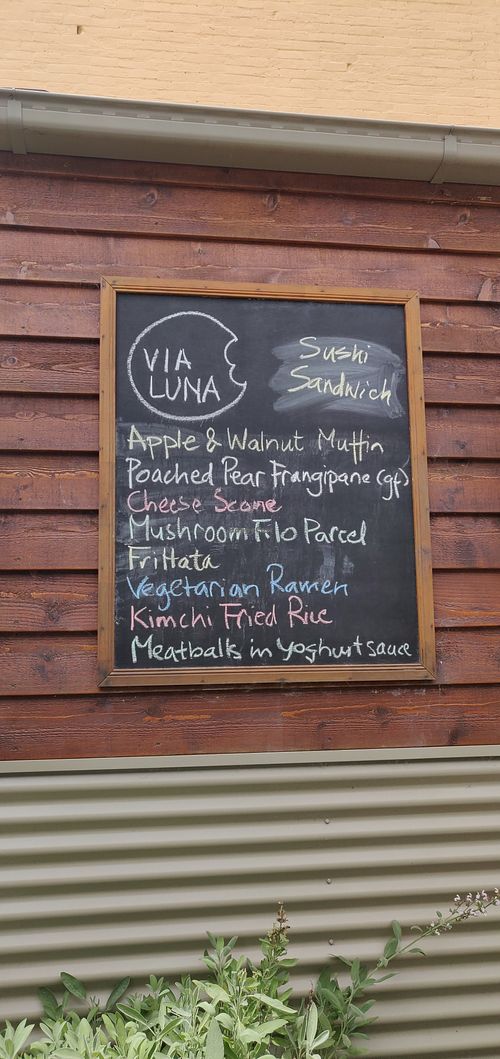 VIA
LUNA
Sushi
Sandwich
Apple & Walnut Muffin
Poached Pear Frangipane (gf)
Cheese Scone
Mushroom Filo Parcel
Frittata
Vegetarian Ramen
Kimchi Fried Rice
Meatballs in Yoghurt sauce